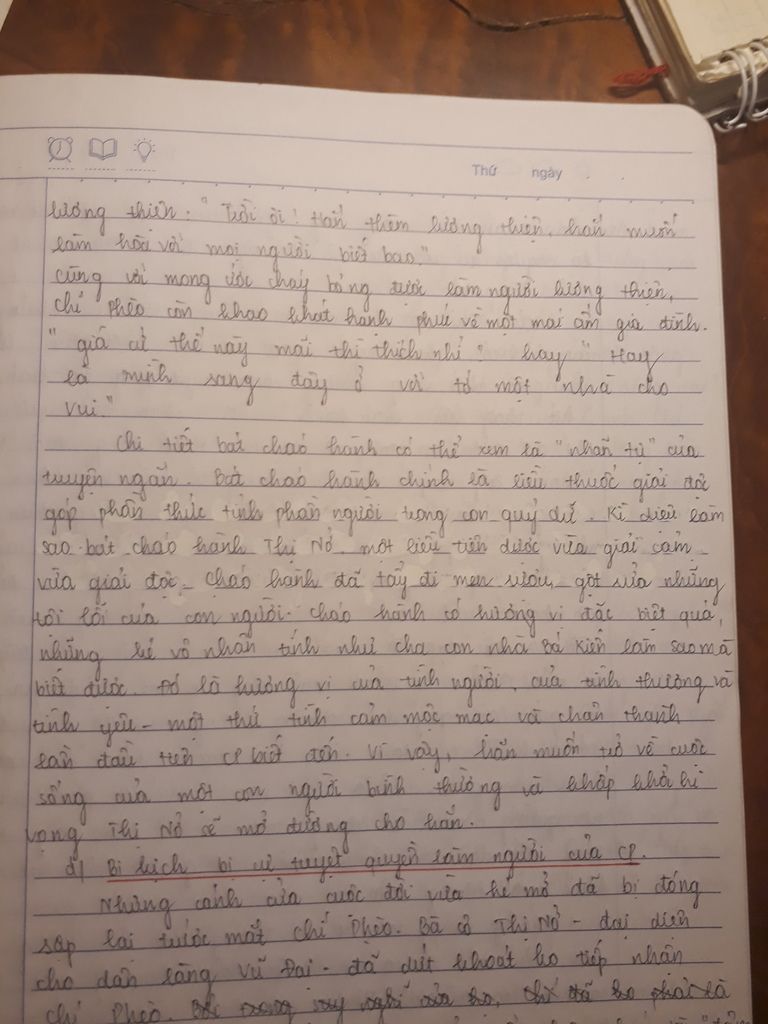 Thứ ngày
lương thiện. "Trời ơi! Hắn thèm lương thiện, hắn muốn
làm hòa với mọi người biết bao."
Cùng với mong ước cháy bỏng được làm người lương thiện,
Chí Phèo còn khao khát hạnh phúc về một mái ấm gia đình.
"giá cứ thế này mãi thì thích nhỉ? hay "Hay
là mình sang đây ở với tớ một nhà cho
vui."
Chi tiết bát cháo hành có thể xem là "nhãn tự" của
truyện ngắn. Bát cháo hành chính là liều thuốc giải độc
góp phần thức tỉnh phần người trong con quỷ dữ. Kì diệu làm
sao bát cháo hành Thị Nở, một liều tiên dược vừa giải cảm
vừa giải độc. Cháo hành đã tẩy đi men rượu, gột rửa những
tội lỗi của con người. cháo hành có hương vị đặc biệt quá,
những kẻ vô nhân tính như cha con nhà Bá Kiến làm sao mà
biết được. Đó là hương vị của tình người, của tình thương và
tình yêu - một thứ tình cảm mộc mạc và chân thành
lần đầu tiên CP biết đến. Vì vậy, hắn muốn trở về cuộc
sống của một con người bình thường và khấp khởi hi
vọng Thị Nở sẽ mở đường cho hắn.
d) Bi kịch bị cự tuyệt quyền làm người của CP.
Nhưng cánh cửa cuộc đời vừa hé mở đã bị đóng
sập lại trước mắt Chí Phèo. Bà cô Thị Nở - đại diện
cho dân làng Vũ Đại - đã dứt khoát ko tiếp nhận
Chí Phèo. trong suy nghĩ của họ, Chí đã ko phải là